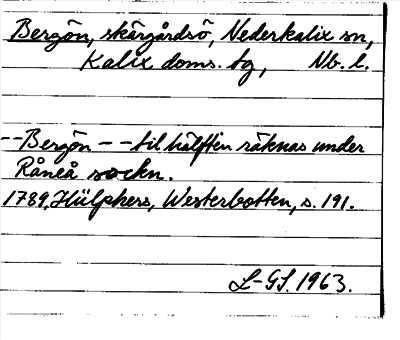 Bergön, skärgårdsö, Nederkalix sn,
Kalix doms. tg, Nb. l.
--Bergön -- till hälften räknas under
Råneå sockn.
1789, Hülphers, Westerbotten, s. 191.
L-GS. 1963.